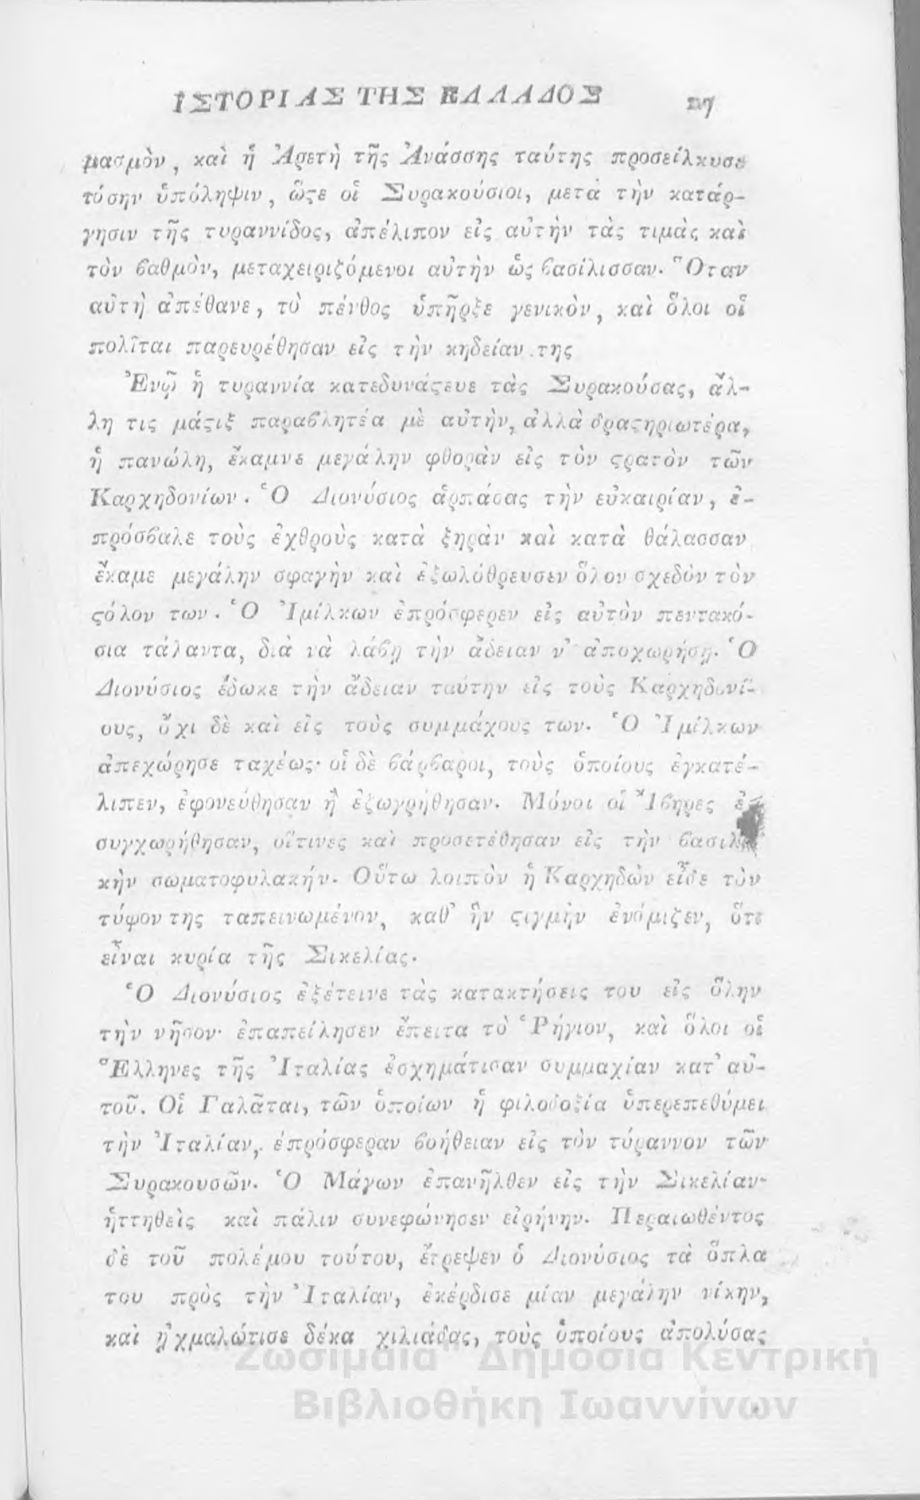 ΙΣΤΟΡΙΑΣ ΤΗΣ ΕΛΛΑΔΟΣ
μασμὸν, καὶ ἡ Ἀρετὴ τῆς Ἀνάσσης ταύτης προσείλκυσε
τόσην ὑπόληψιν, ὥςε οἱ Συρακούσιοι, μετὰ τὴν κατάρ-
γησιν τῆς τυραννίδος, ἀπέλιπον εἰς αὐτὴν τὰς τιμὰς καὶ
τὸν ϐαθμὸν, μεταχειριζόμενοι αὐτὴν ὡς ϐασίλισσαν. Ὅταν
αὐτὴ ἀπέθανε, τὸ πένθος ὑπῆρξε γενικὸν, καὶ ὅλοι οἱ
πολῖται παρευρέθησαν εἰς τὴν κηδείαν της
Ἐνῷ ἡ τυραννία κατεδυνάςευε τὰς Συρακούσας, ἄλ-
λη τις μάςιξ παραϐλητέα μὲ αὐτὴν, ἀλλὰ δραςηριωτέρα,
ἡ πανώλη, ἔκαμνε μεγάλην φθορὰν εἰς τὸν ςρατὸν τῶν
Καρχηδονίων. Ὁ Διονύσιος ἁρπάσας τὴν εὐκαιρίαν, ἐ-
πρόσϐαλε τοὺς ἐχθροὺς κατὰ ξηρὰν καὶ κατὰ θάλασσαν
ἔκαμε μεγάλην σφαγὴν καὶ ἐξωλόθρευσεν ὅλον σχεδὸν τὸν
ςόλον των. Ὁ Ἰμίλκων ἐπρόσφερεν εἰς αὐτὸν πεντακό-
σια τάλαντα, διὰ νὰ λάϐῃ τὴν ἄδειαν ν' ἀποχωρήσῃ. Ὁ
Διονύσιος ἔδωκε τὴν ἄδειαν ταύτην εἰς τοὺς Καρχηδονί-
ους, ὄχι δὲ καὶ εἰς τοὺς συμμάχους των. Ὁ Ἰμίλκων
ἀπεχώρησε ταχέως· οἱ δὲ ϐάρϐαροι, τοὺς ὁποίους ἐγκατέ-
λιπεν, ἐφονεύθησαν ἢ ἐζωγρήθησαν. Μόνοι οἱ Ἴϐηρες ἐ-
συγχωρήθησαν, οἵτινες καὶ προσετέθησαν εἰς τὴν ϐασιλι-
κὴν σωματοφυλακήν. Οὕτω λοιπὸν ἡ Καρχηδὼν εἶδε τὸν
τύφον της ταπεινωμένον, καθ' ἣν ςιγμὴν ἐνόμιζεν, ὅτι
εἶναι κυρία τῆς Σικελίας.
Ὁ Διονύσιος ἐξέτεινε τὰς κατακτήσεις του εἰς ὅλην
τὴν νῆσον· ἐπαπείλησεν ἔπειτα τὸ Ῥήγιον, καὶ ὅλοι οἱ
Ἕλληνες τῆς Ἰταλίας ἐσχημάτισαν συμμαχίαν κατ' αὐ-
τοῦ. Οἱ Γαλᾶται, τῶν ὁποίων ἡ φιλοδοξία ὑπερεπεθύμει
τὴν Ἰταλίαν, ἐπρόσφεραν ϐοήθειαν εἰς τὸν τύραννον τῶν
Συρακουσῶν. Ὁ Μάγων ἐπανῆλθεν εἰς τὴν Σικελίαν·
ἡττηθεὶς καὶ πάλιν συνεφώνησεν εἰρήνην. Περαιωθέντος
δὲ τοῦ πολέμου τούτου, ἔτρεψεν ὁ Διονύσιος τὰ ὅπλα
του πρὸς τὴν Ἰταλίαν, ἐκέρδισε μίαν μεγάλην νίκην,
καὶ ᾐχμαλώτισε δέκα χιλιάδας, τοὺς ὁποίους ἀπολύσας
Ζωσιμαία" Δημόσια Κεντρική
Βιβλιοθήκη Ιωαννίνων